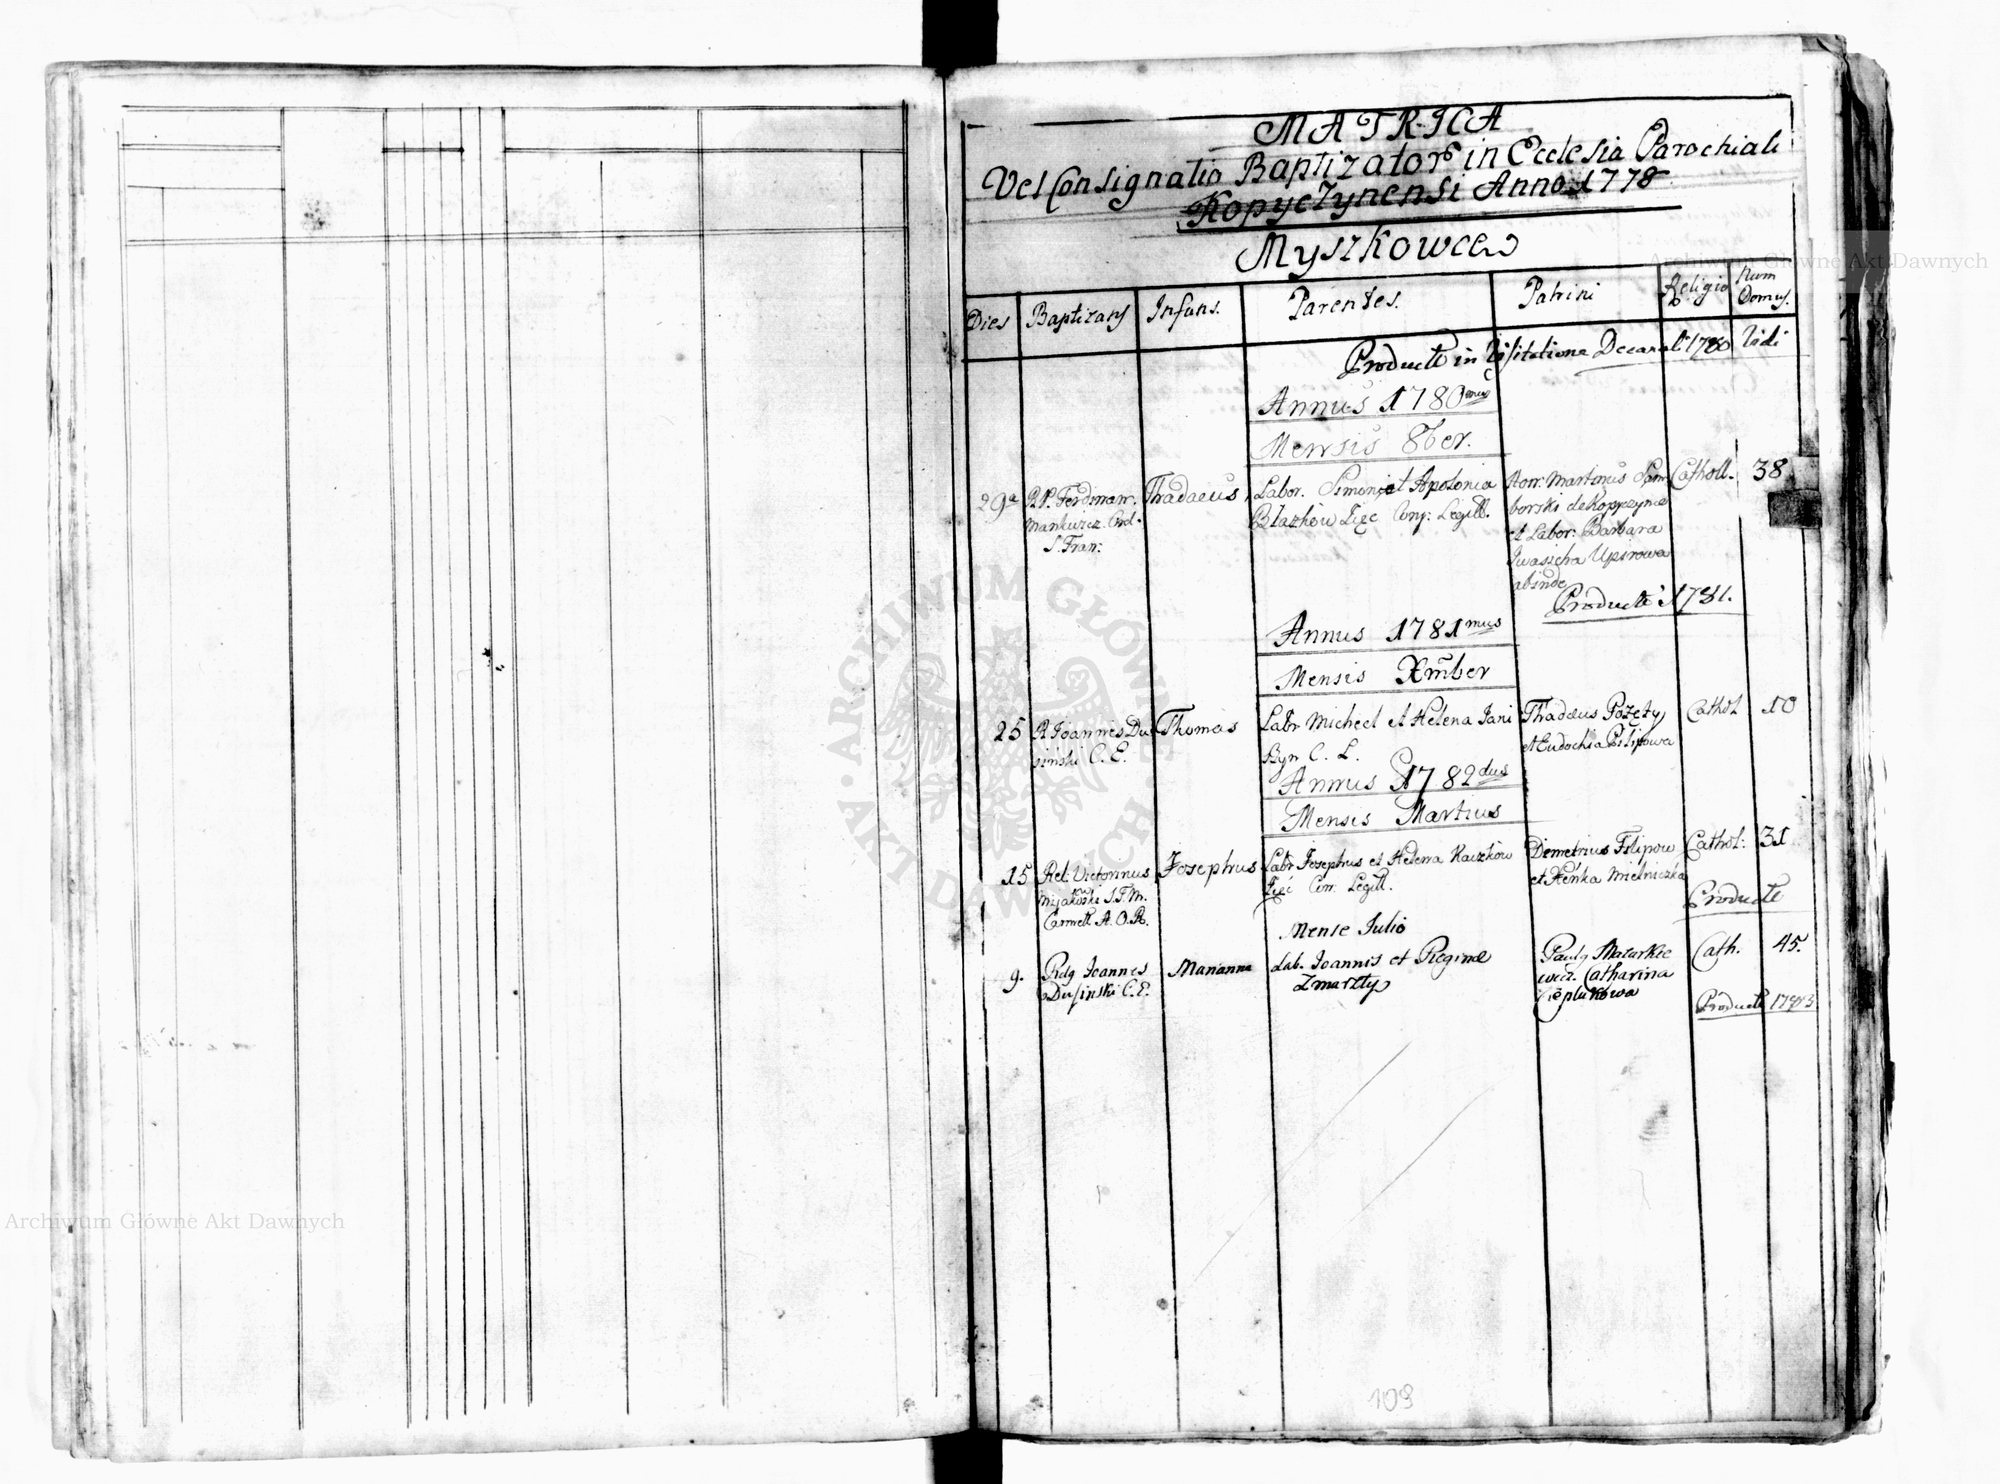 MATRICA
Vel Consignatio Baptizatorũ in Ecclesia Parochiali
Kopyczynensi Anno 1778
Myszkowce
Dies Baptizans Infans. Parentes. Patrini Religio Num Domus.
Producta in Visitatione Decanali 1780 Vidi
Annus 1780mus
Mensis 8ber.
29a R.P. Ferdinan. Thadaeus Labor. Simonis et Apolonia Hon: Martinus Sam Catholl. 38
Mankurcz. Ord. Błazków Conj: Legitt. borski de Kopyczynce
S. Fran: et Labor: Barbara
Iwasicha Upirowa
abinde
Producta 1781.
Annus 1781mus
Mensis Xmber
25 R. Joannes Du Thomas Labr Michael et Helena Jani Thadaeus Pozezy Cathol 10
siński C. E. Byn C. L. et Eudochia Pilipowa
Annus 1782dus
Mensis Martius
15 Rel: Victorinus Josephus Labr Josephus et Helena Kaczków Demetrius Filipow Cathol: 31
Mijakoski S.T.M. Con: Legitt. et Heńka Mielniczka
Carmelit. A. O. R. Producta
Mense Julio
9. Rdq Joannes Marianna Lab. Joannis et Reginae Paulq Mazarkie Cath. 45.
Dusinski C.E. Zmarzły wicz. Catharina
Cieplukowa
Producta 1783
109
Archiwum Główne Akt Dawnych
Archiwum Główne Akt Dawnych
ARCHIWUM GŁÓWNE AKT DAWNYCH